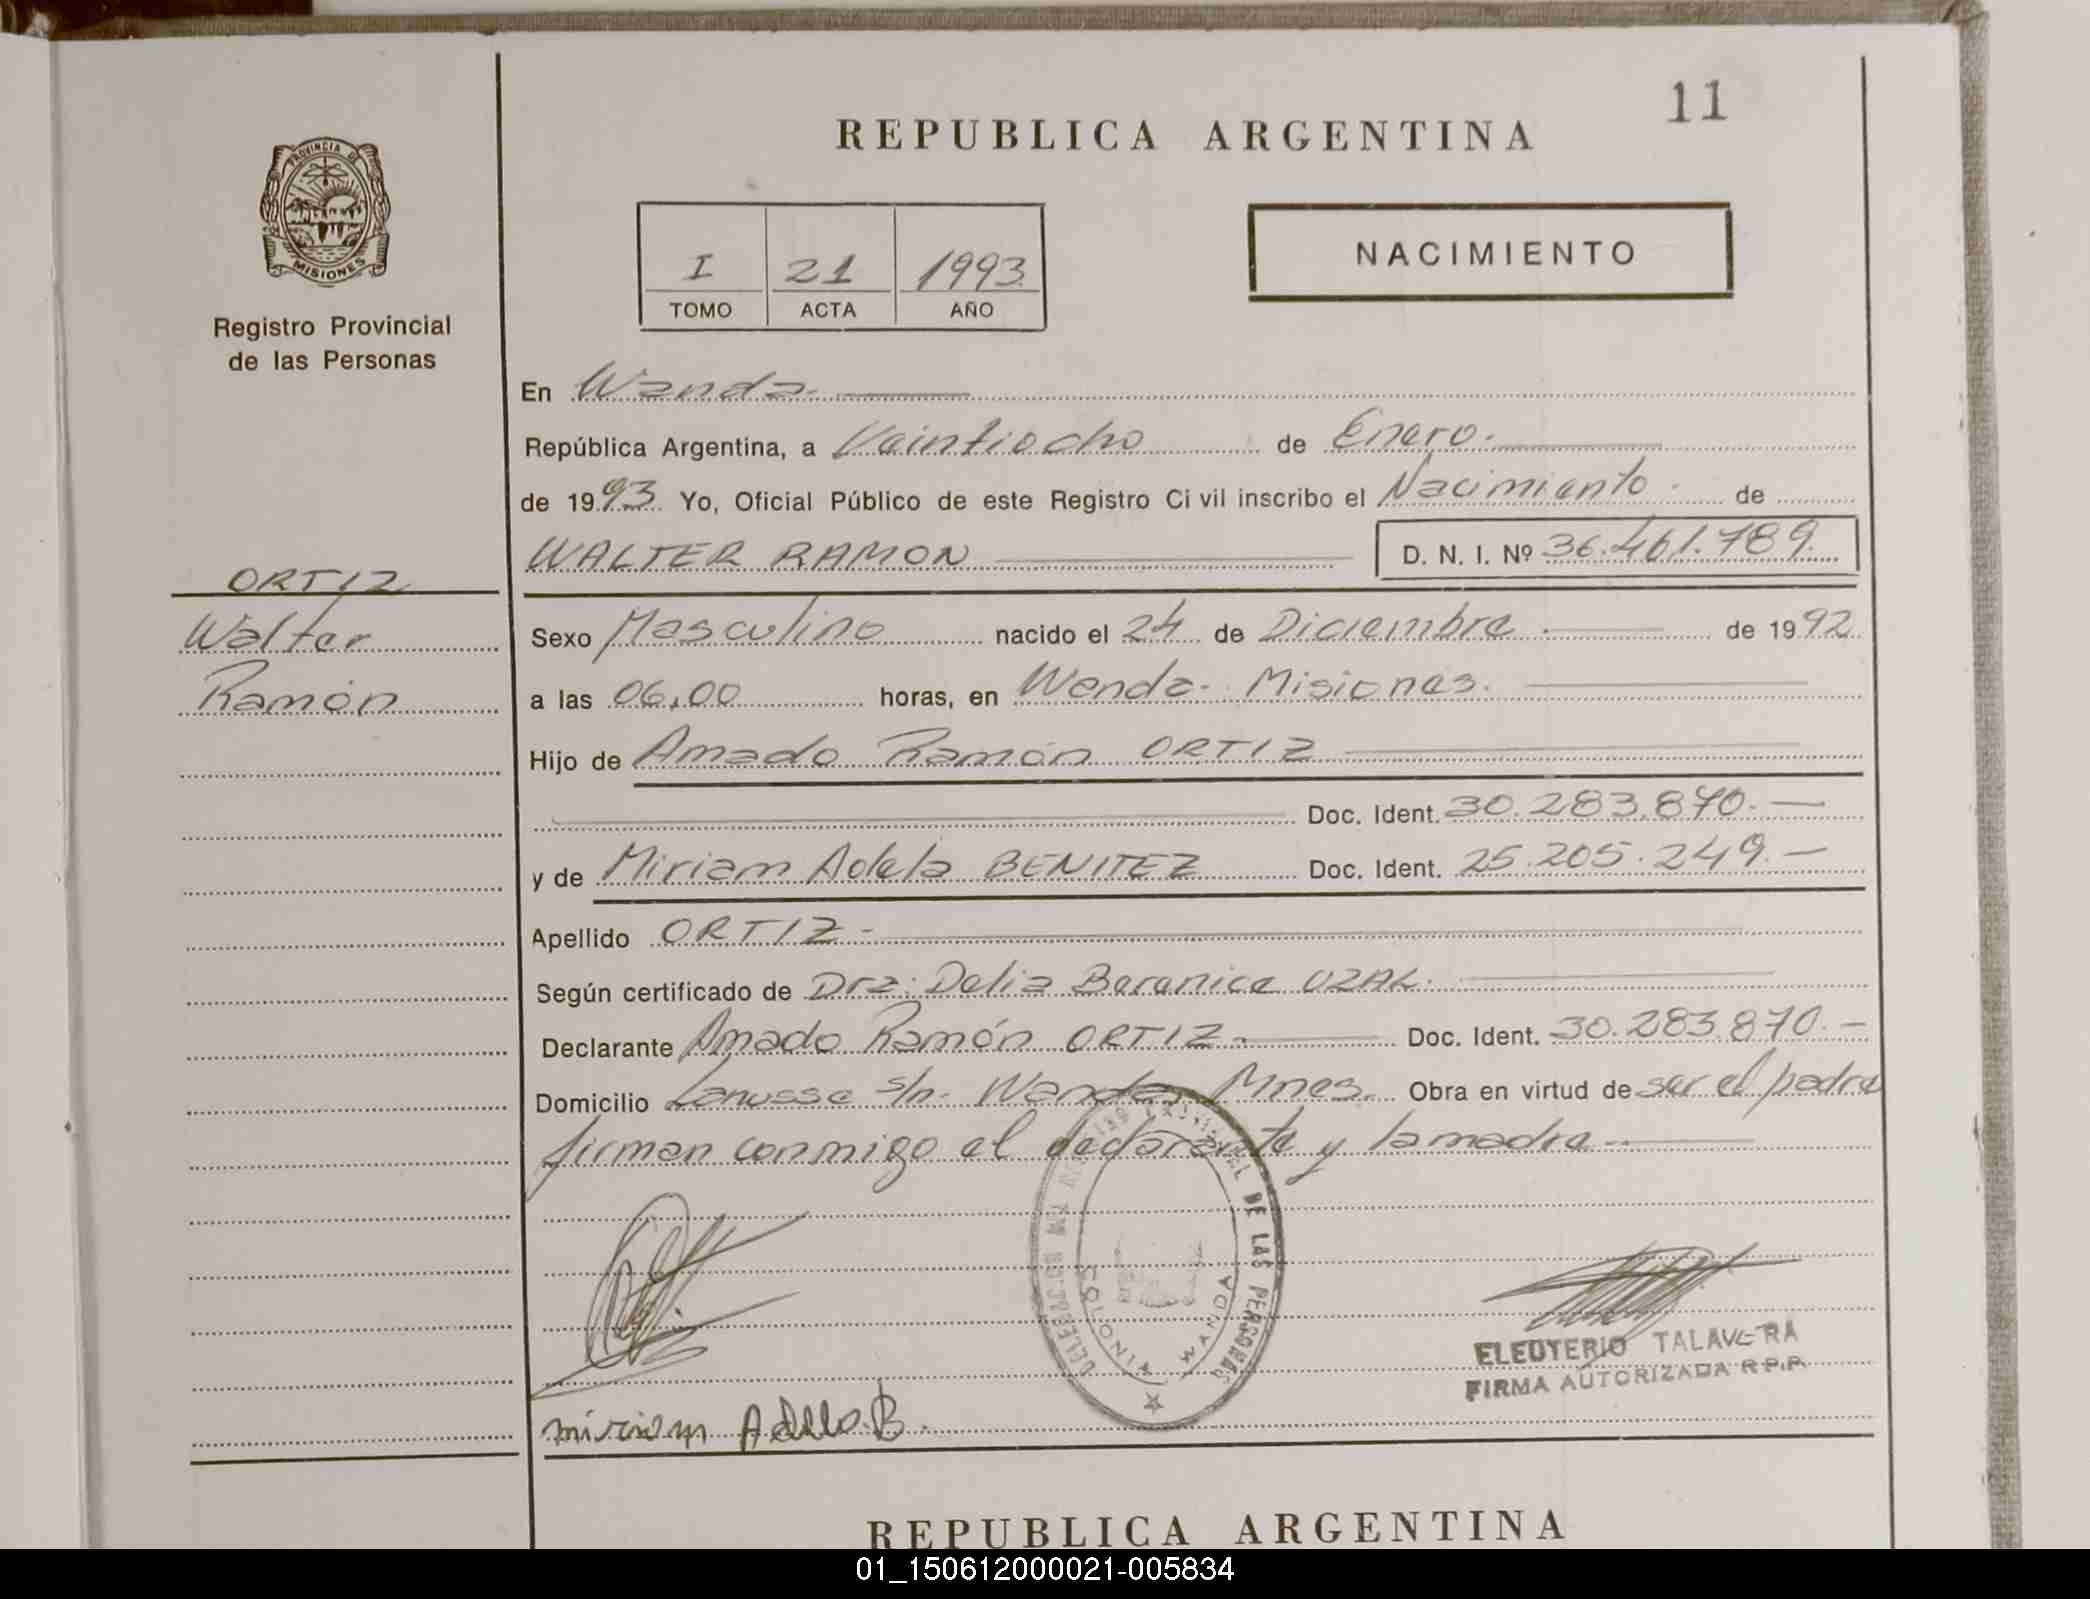 11
REPUBLICA ARGENTINA
PROVINCIA DE
MISIONES
Registro Provincial
de las Personas
I 21 1993
TOMO ACTA AÑO
NACIMIENTO
En Wanda.
República Argentina, a Veintiocho de Enero.
de 1993. Yo, Oficial Público de este Registro Civil inscribo el Nacimiento. de
WALTER RAMON D. N. I. Nº 36.461.789.
ORTIZ
Walter
Ramón
Sexo Masculino nacido el 24 de Diciembre de 1992
a las 06,00 horas, en Wanda- Misiones.
Hijo de Amado Ramón ORTIZ
Doc. Ident. 30.283.870.-
y de Miriam Adela BENITEZ Doc. Ident. 25.205.249.-
Apellido ORTIZ-
Según certificado de Dra: Delia Beranice UZAL.
Declarante Amado Ramón ORTIZ- Doc. Ident. 30.283.870.-
Domicilio Lanusse s/n. Wanda, Mnes. Obra en virtud de ser el padre
firman conmigo el declarante y la madre.-
PROVINCIAL DE LAS PERSONAS
COLONIA WANDA
ELEUTERIO TALAVERA
FIRMA AUTORIZADA R.P.P.
miriam Adela.B.
REPUBLICA ARGENTINA
01_150612000021-005834